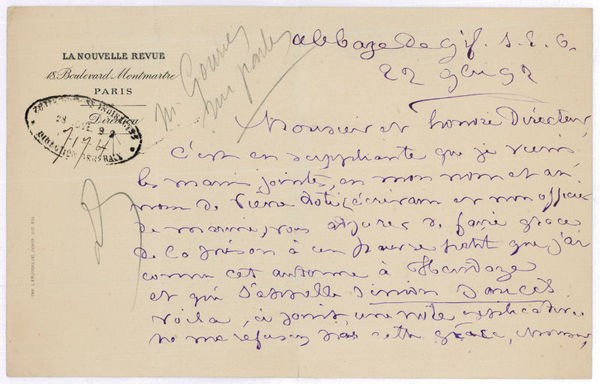 LA NOUVELLE REVUE
18, Boulevard Montmartre
PARIS
Direction
Mr Gourier
m'en parler
abbaye de Gif. S. & O.
22
Monsieur et honoré Directeur,
C'est en suppliante que je viens
les mains jointes, en mon nom et au
nom de Pierre Loti (écrivain et non officier
de marine) vous adjurer de faire grâce
de la prison à un pauvre petit que j'ai
connu cet automne à Hendaye
et qui s'appelle Simon Dancès
Voilà, ci joint, une note explicative
ne me refusez pas cette grâce, Monsieur,